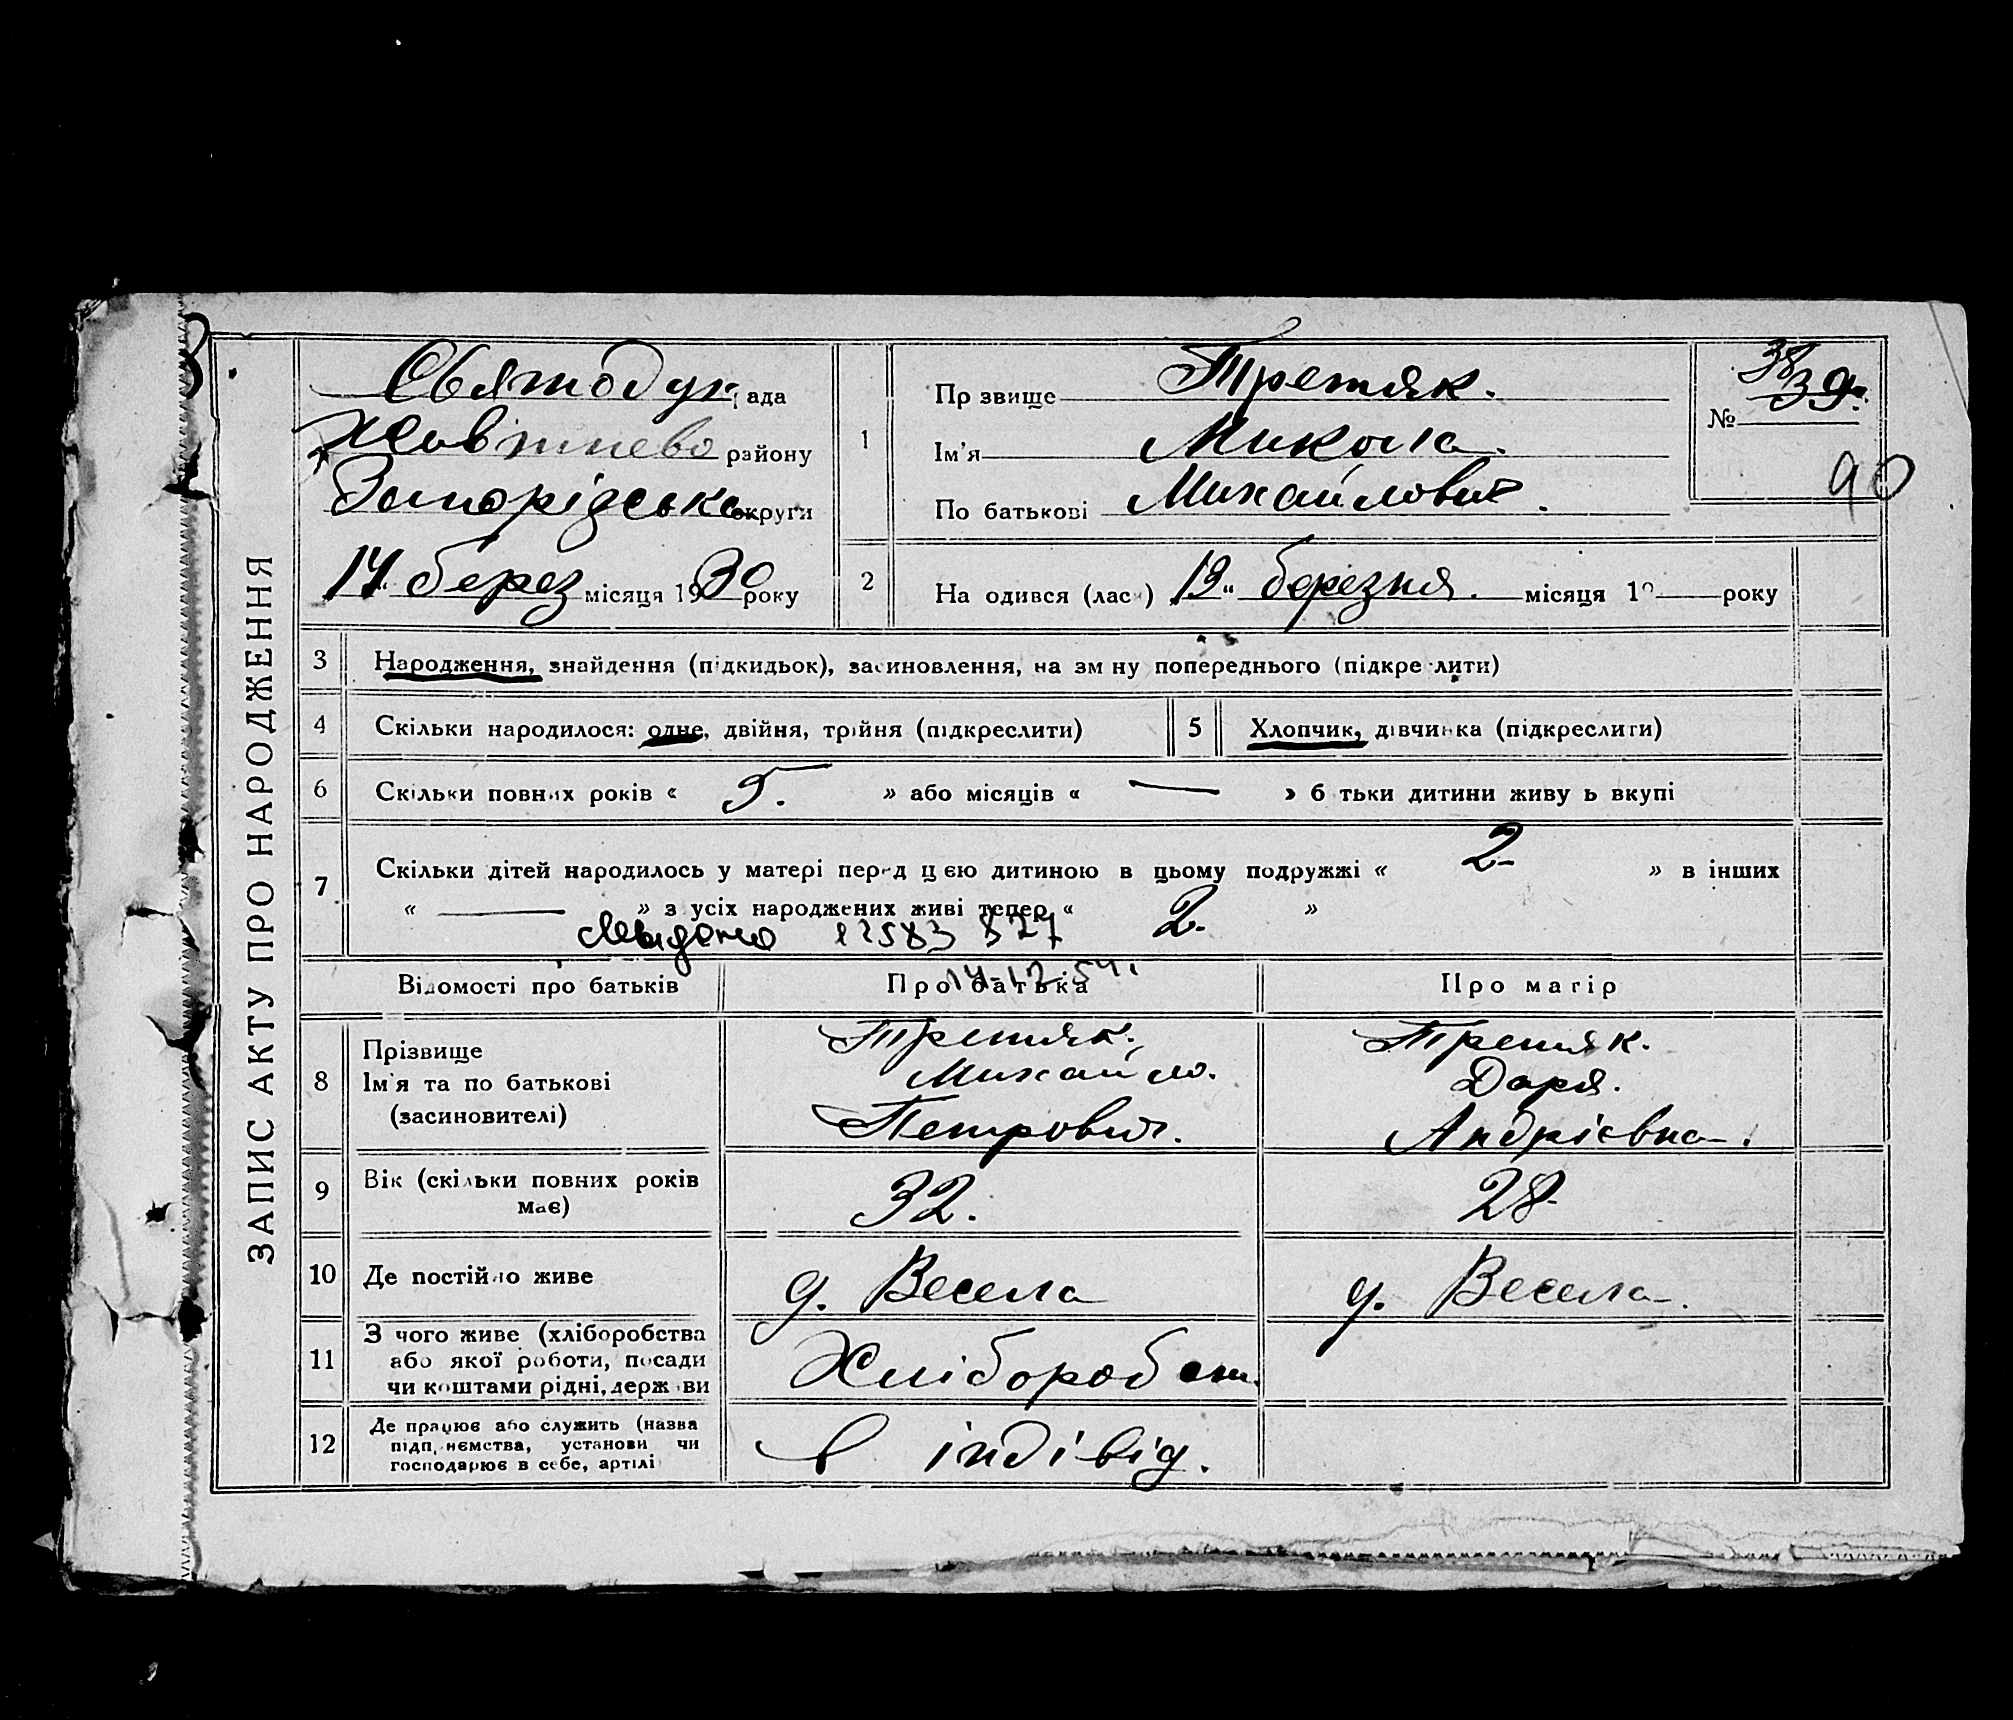 ЗАПИС АКТУ ПРО НАРОДЖЕННЯ
Святодух рада
Жовтнево району
Запорідська округи
14 " берез місяця 1930 року
1
Прзвище Третяк.
Ім'я Микола.
По батькові Михайлович.
№ 38 39.
90
2 На одився (лась) 19 " березня. місяця 19 року
3 Народження, знайдення (підкидьок), засиновлення, на зм ну попереднього (підкре лити)
4 Скільки народилося: одне, двійня, трійня (підкреслити)
5 Хлопчик, дівчинка (підкреслити)
6 Скільки повних років « 5. » або місяців « — » б тьки дитини живу ь вкупі
7 Скільки дітей народилось у матері перед цією дитиною в цьому подружжі « 2 » в інших
« — » з усіх народжених живі тепер « 2. »
827
14-12-54.
Відомості про батьків
Про батька
Про матір
8 Прізвище
Ім'я та по батькові
(засиновителі)
Третяк.
Михайло.
Петрович.
Третяк.
Даря.
Андрієвна.
9 Вік (скільки повних років
має)
32.
28
10 Де постійно живе
д. Весела
д. Весела.
11 З чого живе (хліборобства
або якої роботи, посади
чи коштами рідні, держ ви
Хліборобств.
12 Де працює або служить (назва
підп, иємства, установи чи
господарює в себе, артілі
в індівід.